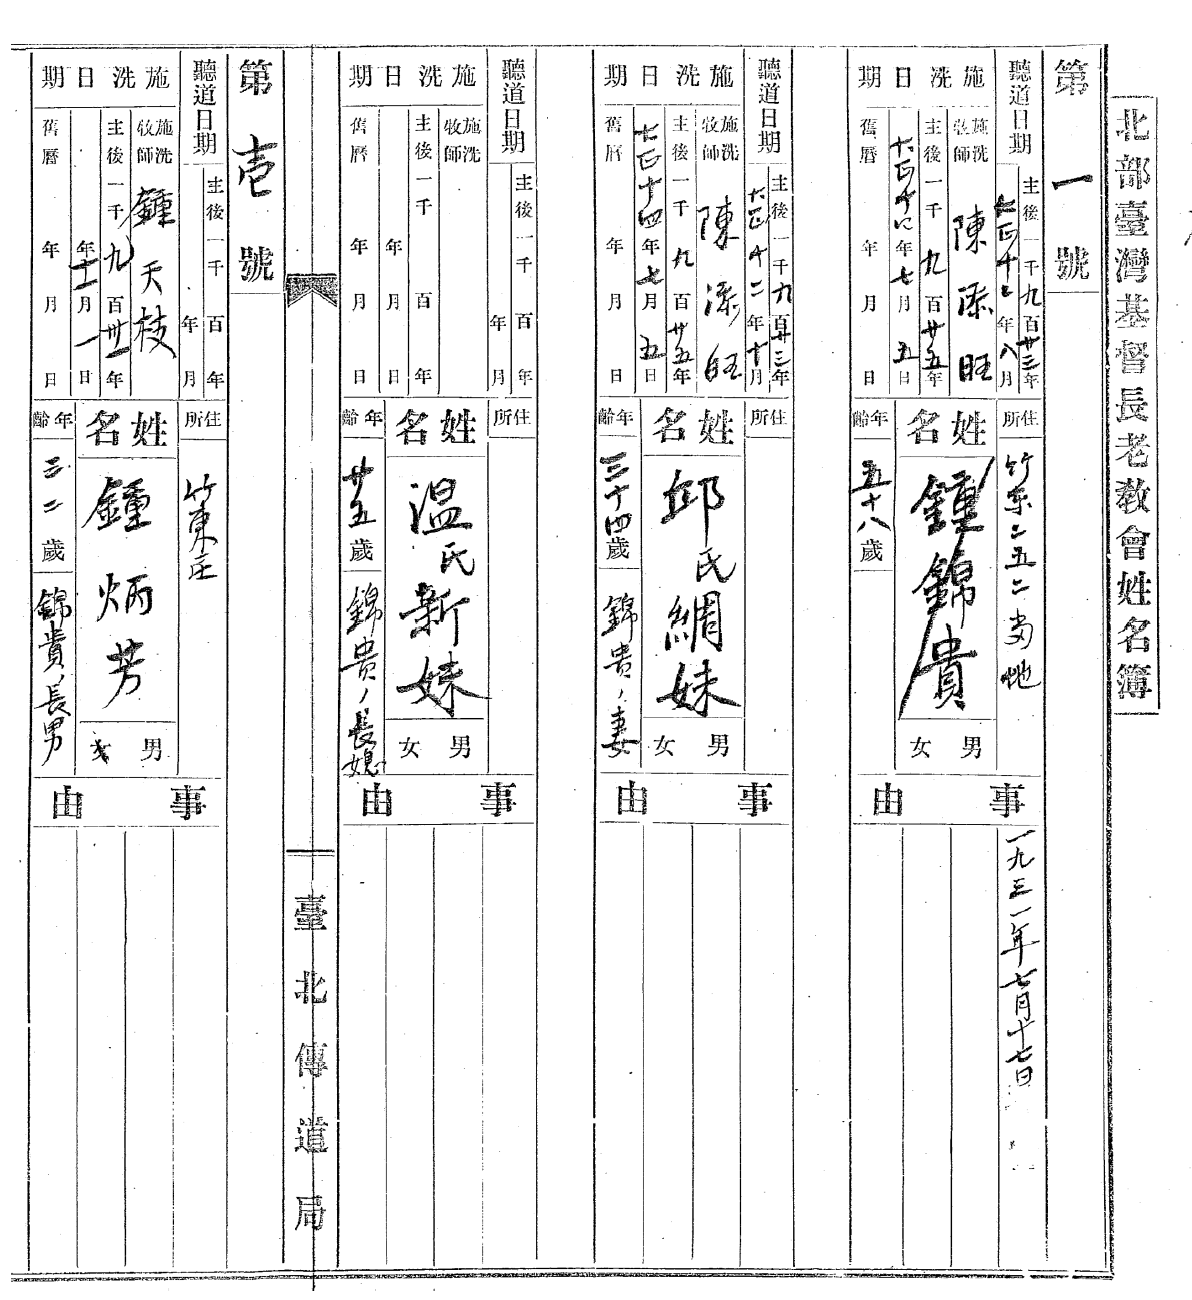 北部臺灣基督長老教會姓名簿
第一號
聽道日期
主後一千九百廿三年
大正十二年八月
施洗日期
施洗牧師
陳添旺
主後一千九百廿五年
大正十四年七月五日
舊曆 年 月 日
住所
竹東二五二番地
姓名
鍾錦貴
男 女
年齡
五十八歲
事由
一九三一年七月十七日
聽道日期
主後一千九百廿三年
大正十二年十月
施洗日期
施洗牧師
陳添旺
主後一千九百廿五年
大正十四年七月五日
舊曆 年 月 日
住所
姓名
邱氏綢妹
男 女
年齡
三十四歲
錦貴ノ妻
事由
聽道日期
主後一千 百 年
年 月
施洗日期
施洗牧師
主後一千 百 年
年 月 日
舊曆 年 月 日
住所
姓名
溫氏新妹
男 女
年齡
廿五歲
錦貴ノ長媳
事由
臺北傳道局
第壱號
聽道日期
主後一千 百 年
年 月
施洗日期
施洗牧師
鍾天枝
主後一千九百卅一年
年十一月一日
舊曆 年 月 日
住所
竹東庄
姓名
鍾炳芳
男 女
年齡
二二歲
錦貴ノ長男
事由